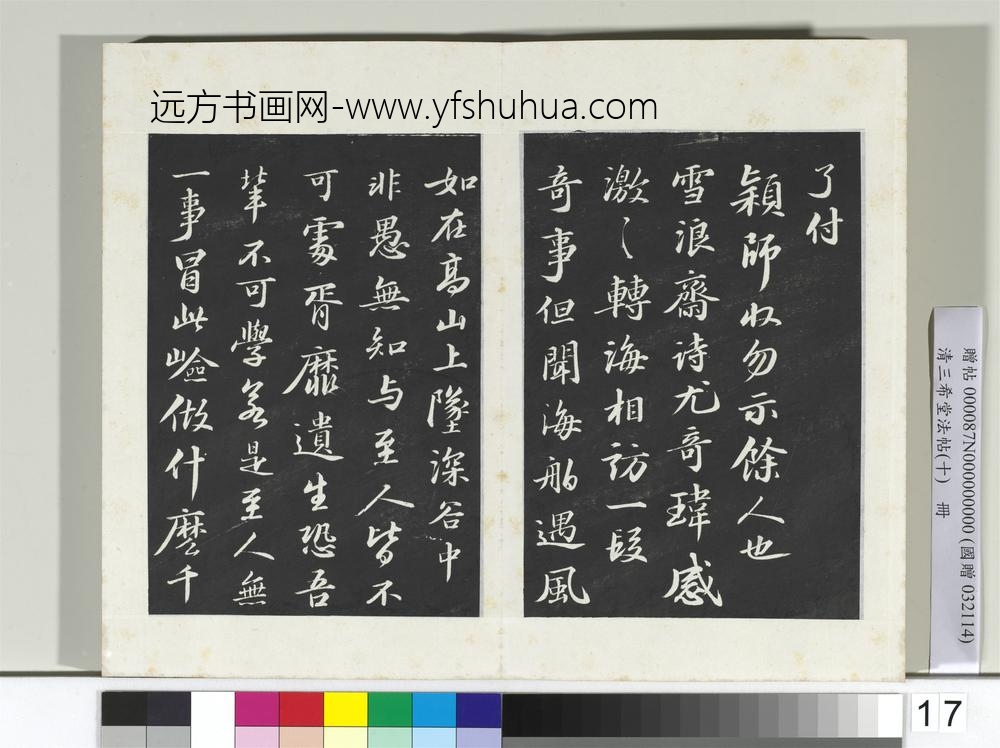 远方书画网-www.yfshuhua.com
了付
潁師收勿示餘人也
雪浪齋诗尤奇瑋感
激〻轉海相訪一段
奇事但聞海舶遇風
如在高山上墬深谷中
非愚無知与至人皆不
可處胥靡遺生恐吾
輩不可學若是至人無
一事冒此嶮做什麽千
贈帖 000087N000000000 (國贈 032114)
清三希堂法帖(十) 冊
17